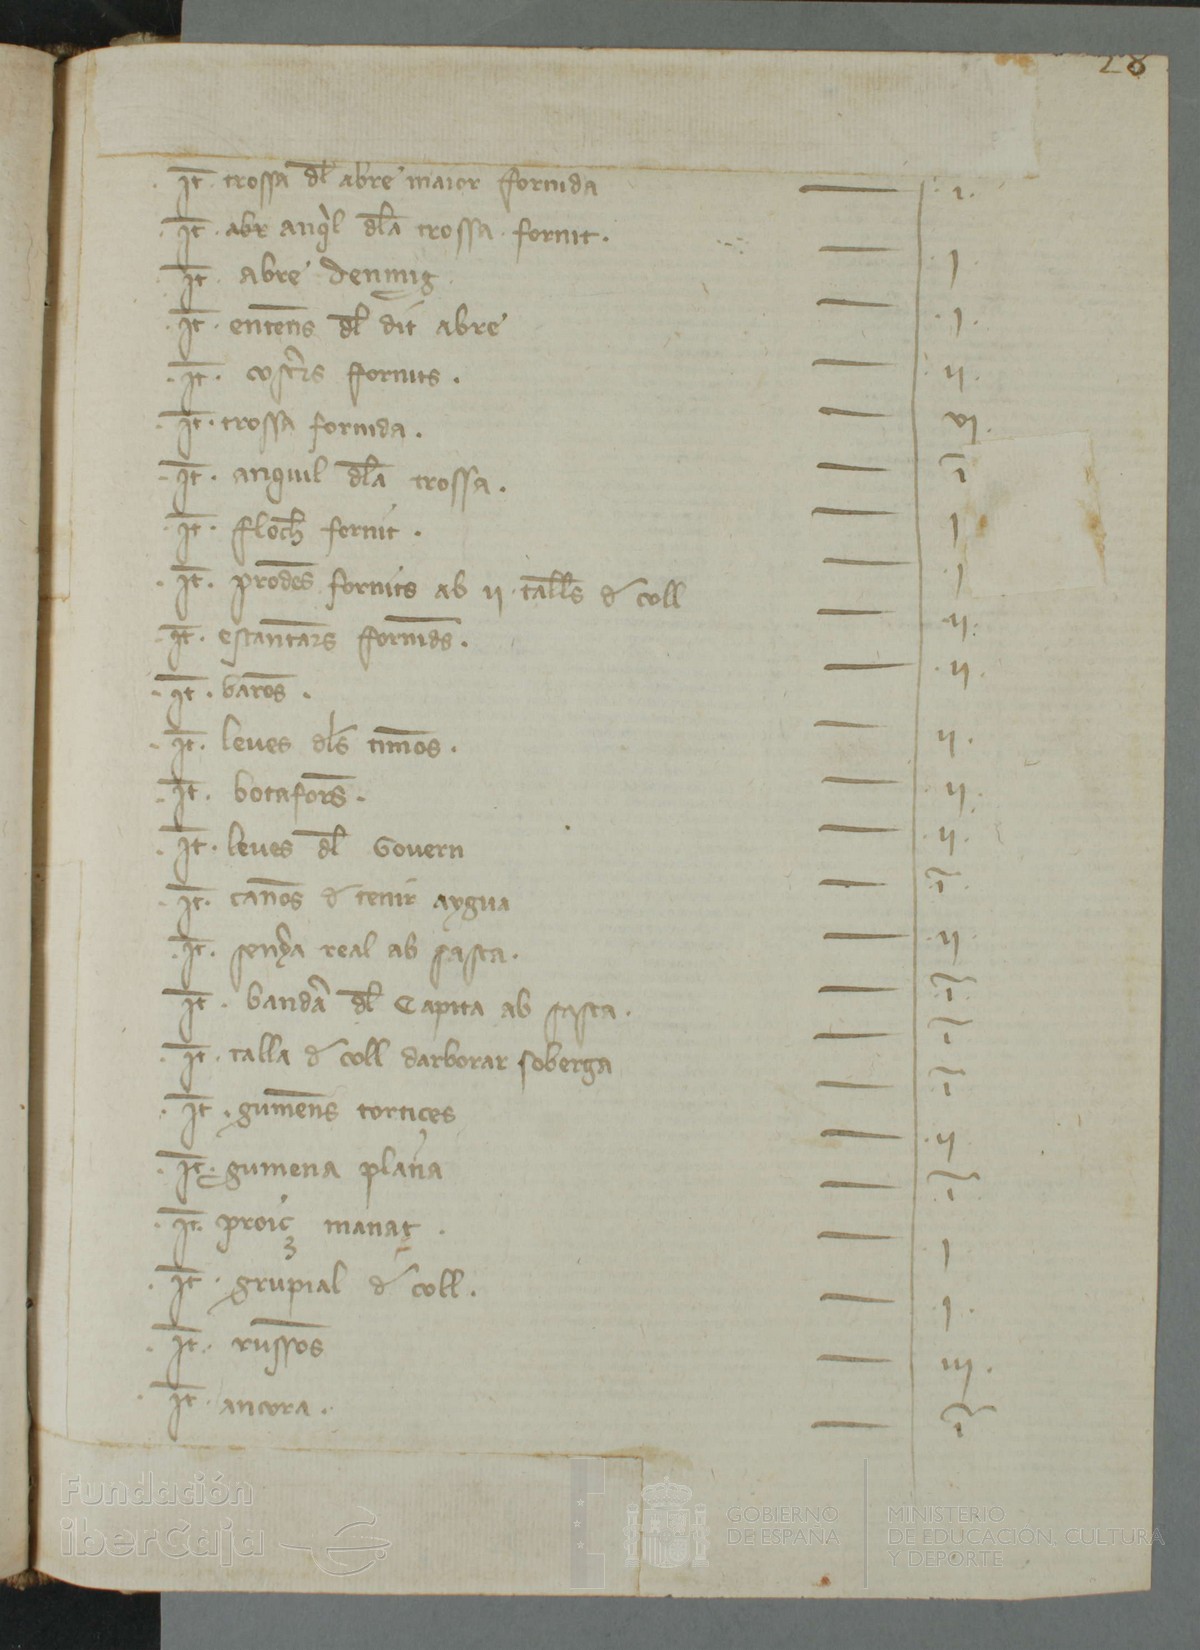 28
It. trossa dl abre maior fornida — .i.
It. abr anql dla trossa fornit. — j
It. abre denmig — .j.
It. entens dl dit abre — ii.
It. costers fornits. — vi.
It. trossa fornida. — i
It. anguil dla trossa. — j
It. floch fornit. — j
It. prodes fornits ab ii talles d coll — .ii.
It. estantars fornids. — .ii.
It. baros. — ii.
It. leues dls timos. — ii.
It. botafors. — .ii.
It. leues dl Gouern — i
It. canos d tenir aygua — .ii.
It. senya real ab sasta. — i
It. banda dl Capita ab sasta. — i
It. talla d coll darborar soberga — i
It. gumens tortices — .ii
It. gumena plana — i
It. proiç manaț. — j
It. grupial d coll. — .j.
It. russos — iii.
It. ancora. — i
Fundación
iberCaja
GOBIERNO
DE ESPAÑA
MINISTERIO
DE EDUCACIÓN, CULTURA
Y DEPORTE